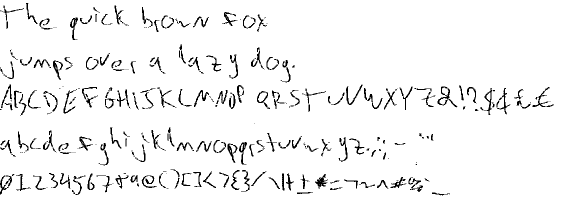 The quick brown fox
jumps over a lazy dog.
ABCDEFGHIJKLMNOP QRSTUVWXYZ&!?$¢£€
abcdefghijklmnopqrstuvwxyz.,:;- "'
01234567+9@()[]<>{}/\|±*=¬~^#%_